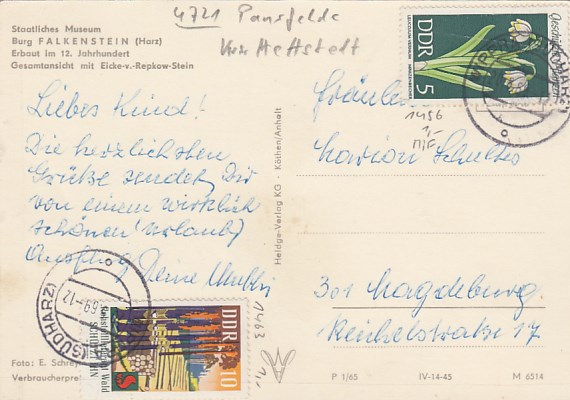 4721 Pansfelde
Staatliches Museum
Burg FALKENSTEIN (Harz)
Erbaut im 12. Jahrhundert
Gesamtansicht mit Eicke-v.-Repkow-Stein
Krs. Hettstedt
Liebes Kind!
Die herzlichsten
Grüße sendet Dir
von einem wirklich
schönen (Urlaub)
Ausflug Deine
Foto: E.
Verbraucherpre
Heldge-Verlag KG · Köthen/Anhalt
DDR
5
1456
Fräulein
Marion Schultes
301 Magdeburg
Reichelstraße 17
(SÜDHARZ)
69-12
DDR
10
1463
P 1/65 IV-14-45 M 6514